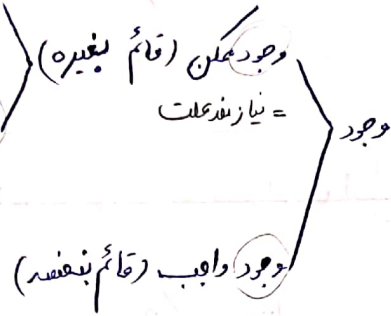 وجود ممکن (قائم بغیره)
= نیازمند علت
وجود
وجود واجب (قائم بنفسه)